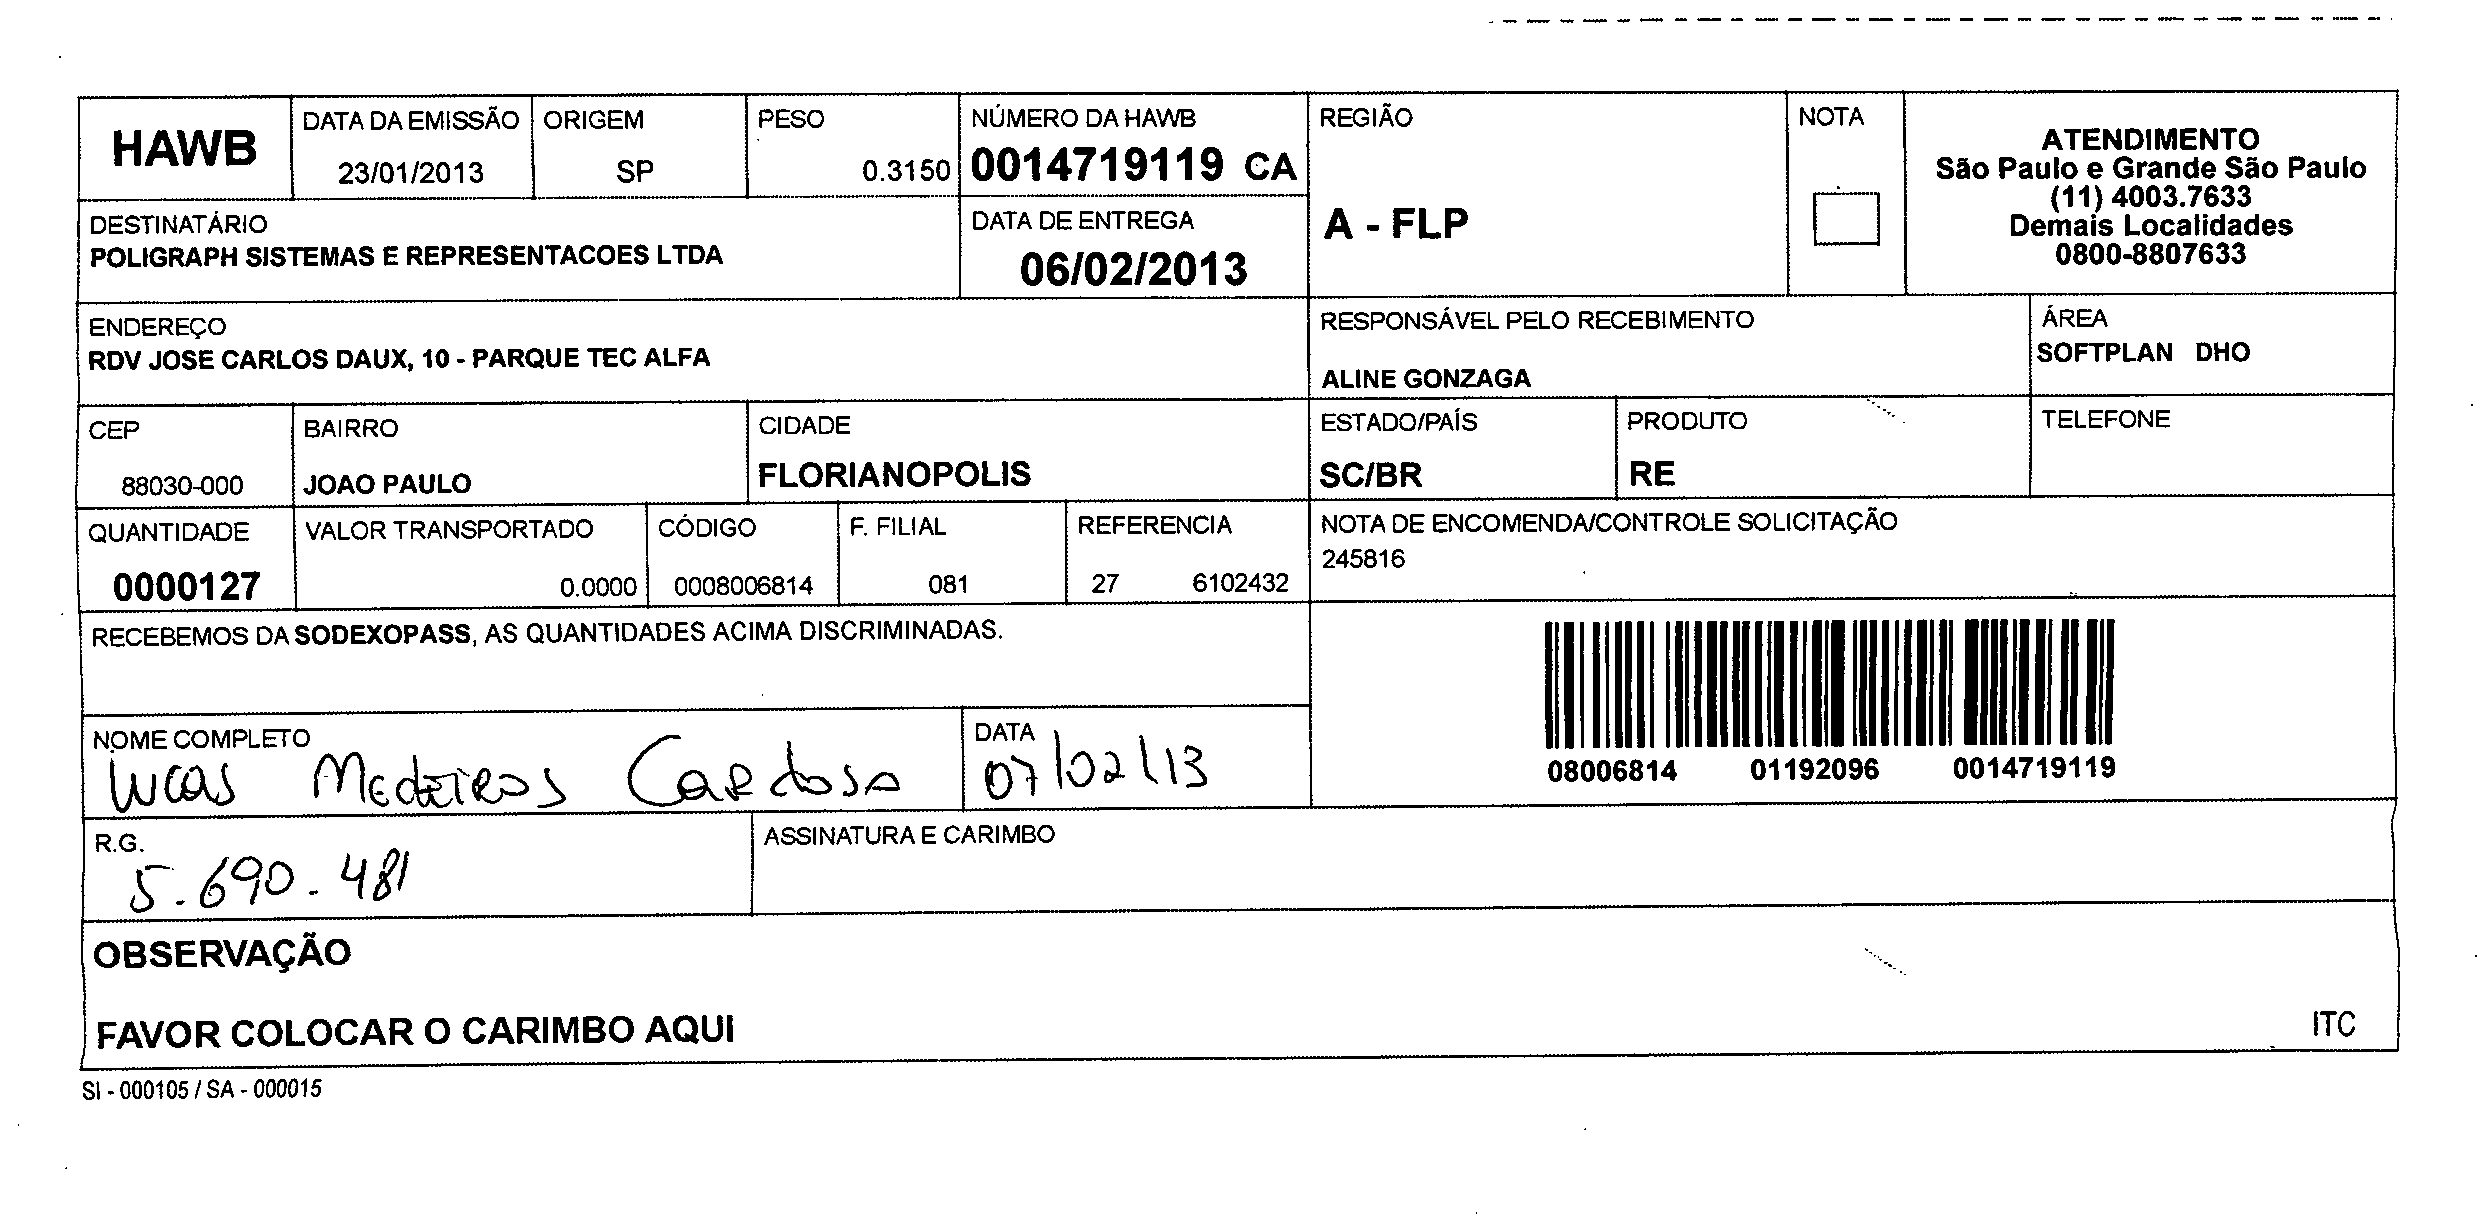 HAWB
DATA DA EMISSÃO
23/01/2013
ORIGEM
SP
PESO
0.3150
NÚMERO DA HAWB
0014719119 CA
REGIÃO
A - FLP
NOTA
ATENDIMENTO
São Paulo e Grande São Paulo
(11) 4003.7633
Demais Localidades
0800-8807633
DESTINATÁRIO
POLIGRAPH SISTEMAS E REPRESENTACOES LTDA
DATA DE ENTREGA
06/02/2013
ENDEREÇO
RDV JOSE CARLOS DAUX, 10 - PARQUE TEC ALFA
RESPONSÁVEL PELO RECEBIMENTO
ALINE GONZAGA
ÁREA
SOFTPLAN DHO
CEP
88030-000
BAIRRO
JOAO PAULO
CIDADE
FLORIANOPOLIS
ESTADO/PAÍS
SC/BR
PRODUTO
RE
TELEFONE
QUANTIDADE
0000127
VALOR TRANSPORTADO
0.0000
CÓDIGO
0008006814
F. FILIAL
081
REFERENCIA
27 6102432
NOTA DE ENCOMENDA/CONTROLE SOLICITAÇÃO
245816
RECEBEMOS DA SODEXOPASS, AS QUANTIDADES ACIMA DISCRIMINADAS.
08006814 01192096 0014719119
NOME COMPLETO
Lucas Medeiros Cardoso
DATA
07/02/13
R.G.
5.690.481
ASSINATURA E CARIMBO
OBSERVAÇÃO
FAVOR COLOCAR O CARIMBO AQUI
ITC
SI - 000105 / SA - 000015